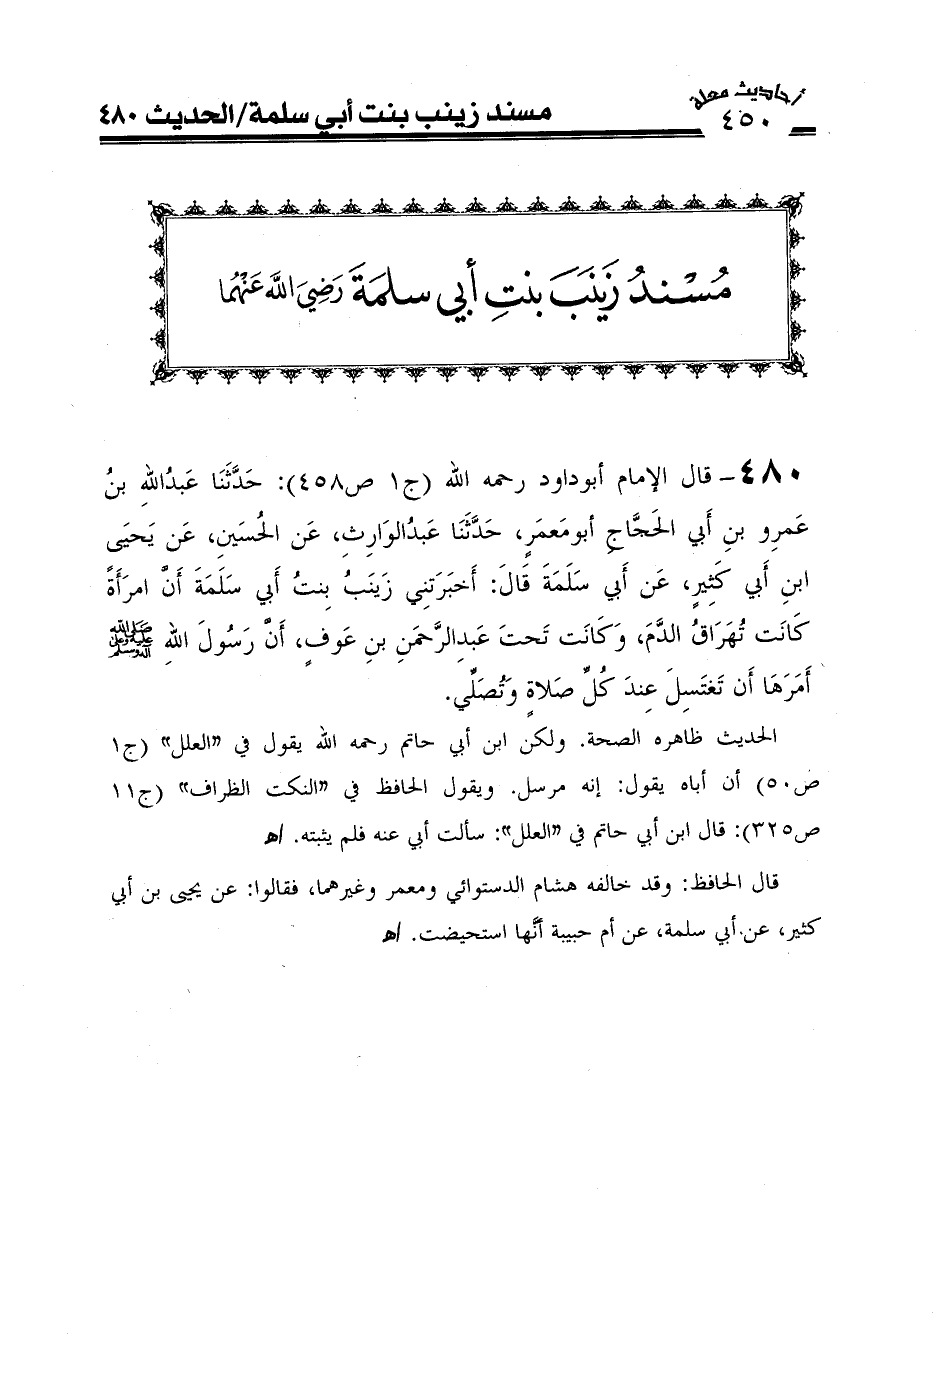 أحاديث معلة
٤٥٠
مسند زينب بنت أبي سلمة/الحديث ٤٨٠
مُسْنَدُ زَيْنَبَ بنتِ أبي سلمَةَ رَضِيَ اللَّهُ عَنْهُمَا
٤٨٠ـ قال الإمام أبوداود رحمه الله (ج١ ص٤٥٨): حَدَّثَنَا عَبدُاللهِ بنُ
عَمرِو بنِ أَبي الحَجَّاجِ أبومَعمَرٍ، حَدَّثَنَا عَبدُالوَارِثِ، عَنِ الحُسَينِ، عَن يَحيَى
ابنِ أَبي كَثِيرٍ، عَن أَبي سَلَمَةَ قَالَ: أَخبَرَتنِي زَينَبُ بِنتُ أَبي سَلَمَةَ أَنَّ امرَأَةً
كَانَت تُهَرَاقُ الدَّمَ، وَكَانَت تَحتَ عَبدِالرَّحمَنِ بنِ عَوفٍ، أَنَّ رَسُولَ اللهِ ﷺ
أَمَرَهَا أَن تَغتَسِلَ عِندَ كُلِّ صَلاةٍ وَتُصَلِّي.
الحديث ظاهره الصحة. ولكن ابن أبي حاتم رحمه الله يقول في «العلل» (ج١
ص٥٠) أن أباه يقول: إنه مرسل. ويقول الحافظ في «النكت الظراف» (ج١١
ص٣٢٥): قال ابن أبي حاتم في «العلل»: سألت أبي عنه فلم يثبته. اه
قال الحافظ: وقد خالفه هشام الدستوائي ومعمر وغيرهما، فقالوا: عن يحيى بن أبي
كثير، عن أبي سلمة، عن أم حبيبة أنَّها استحيضت. اه